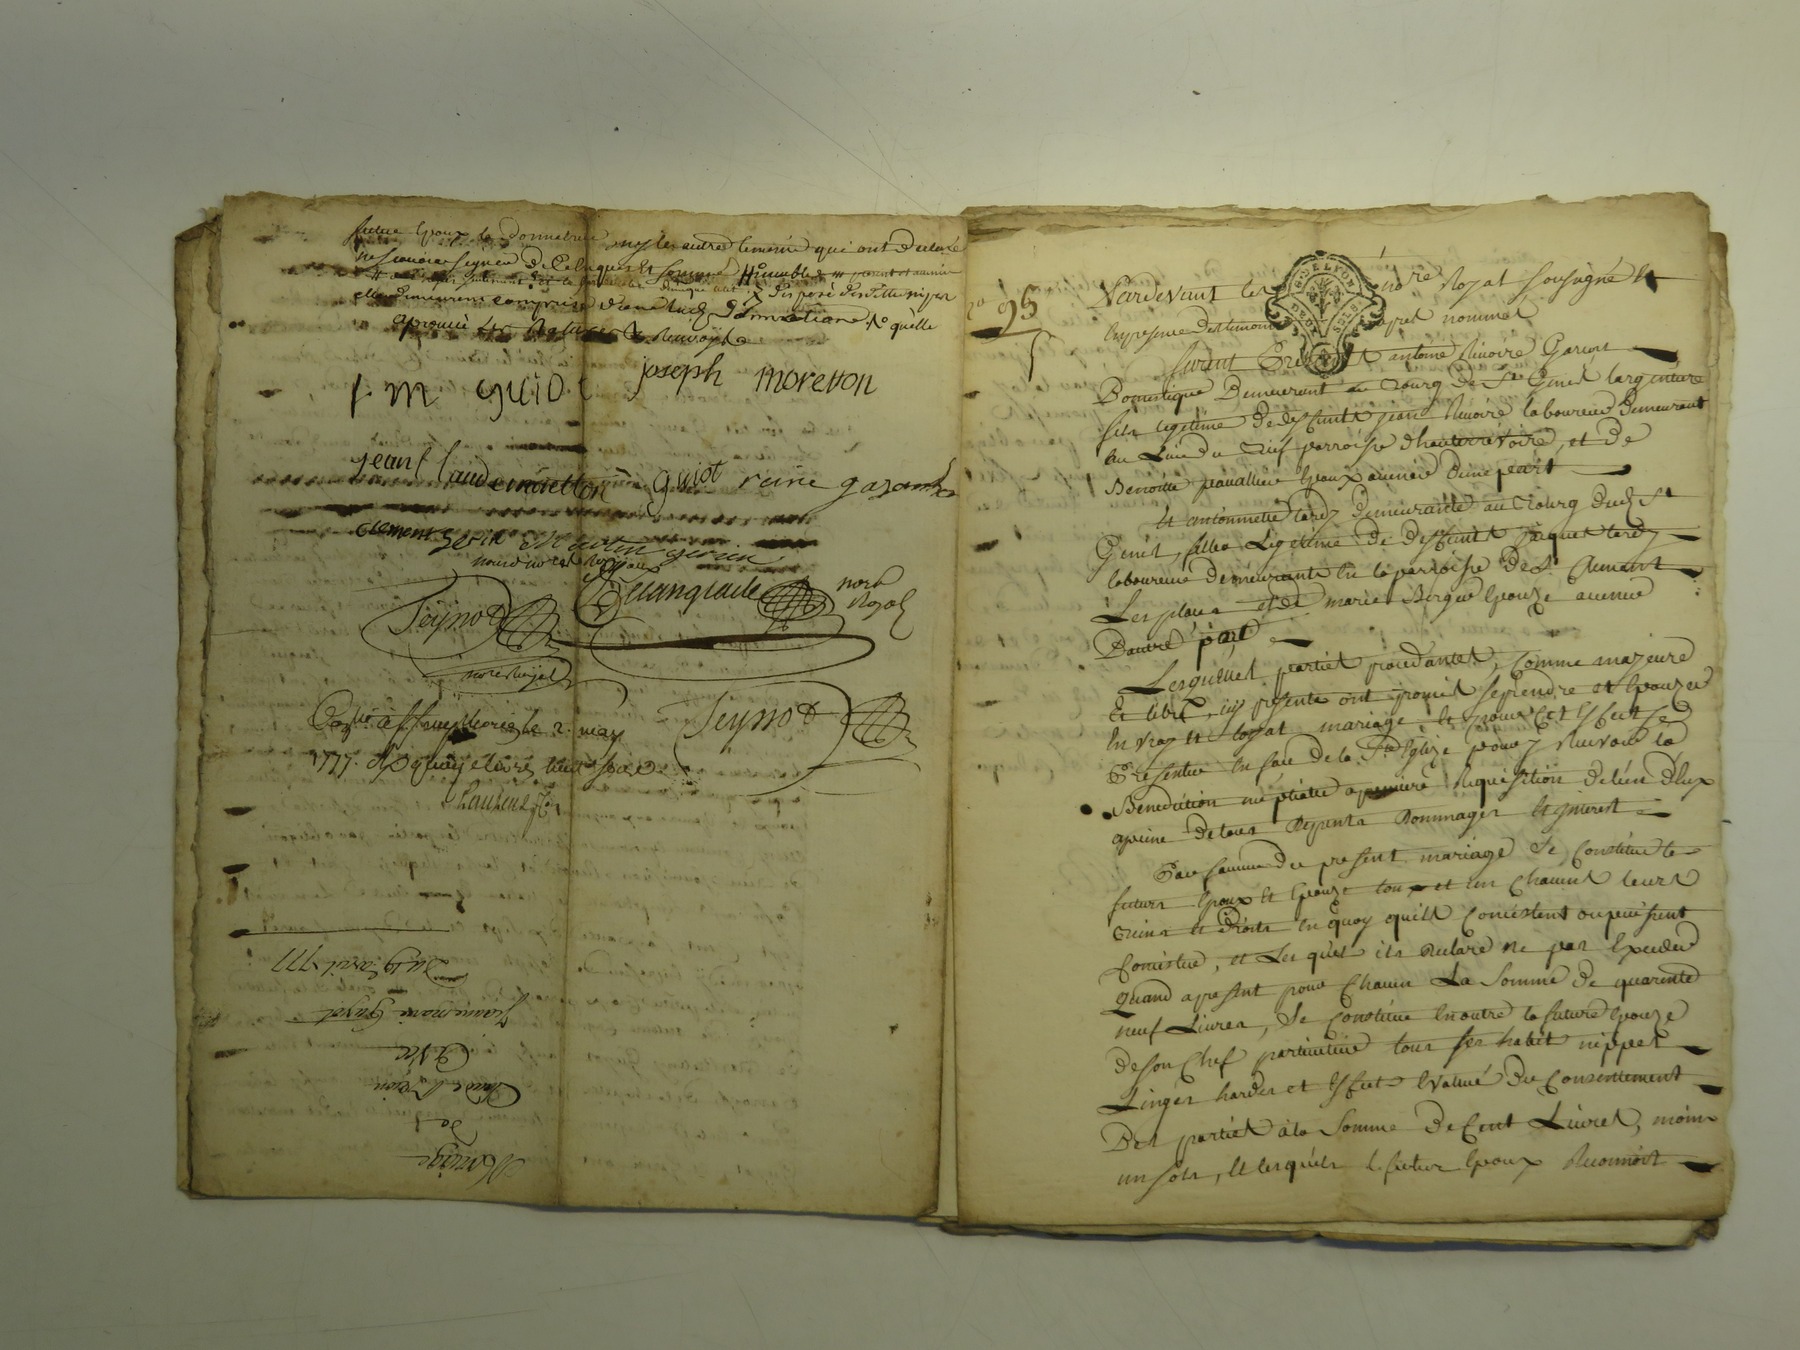 futur Epoux la donnatrice ny les autre temoins qui ont declaré
ne scavoir signer De Ce Enquis et sommé
elle demeurent comprise dans lad. Donnation
aprouvé Renvoÿé
j m guiot joseph moretton
jean Claude moretton guiot reine gazanch
clement gerin Martin gerin
Delanglade nore Royal
Peÿnod
nore Royal
Peÿnod
Conlé à st simphorien le 2. may
1777. Rx quinze livres huit sols
Laurens
Du 19 avril 1777
Jeanne marie Guyot
Avec
Claude
de
Mariage
95
Pardevant les nore Royal Sousigné Et
En presence des temoins apres nommés
furent Presents antoine Rivoire Garçon
Domestique Demeurant au Bourg de St Genis largentiere
fils legitime de deffunt jean Rivoire laboureur demeurant
au Lieu du Crif parroisse dhauterivoire, et de
Benoitte pavallier Epoux avenir dune part
Et antoinette tardy demeurante au Bourg dud. St
Genis, fille Legitime de deffunt jacques tardy
laboureur demeurante En la parroisse de St Clement
Les places et de marie Bergue Epouze avenir
Dautre part
Lesquelles parties procedantes, Comme majeure
Et libre, icy presente ont promis se prendre et Epouzer
En vray Et loyal mariage, Et pour Cet Effect se
Presenter En face de la Ste Eglize pour y Recevoir la
Benediction nuptialle a premiere Requisition de lun d'Eux
apeine de tous Depents Dommages Et jnterest
En faveur du present mariage Se Constitue les
futurs Epoux Et Epouze tous et un Chacun leurs
Biens et droits En quoy quils Concistent ou puissent
Concister, et Les quels ils Declare ne pas Exceder
quand apresent pour Chacun La Somme de quarente
neuf Livres, Se Constitue En outre la future Epouze
de son Chef particulier tous ses habit nippes
Linges hardes et Effect Evalué du Consentement
Des parties à la Somme de Cent Livres, moins
un sols, Et lesquels le futur Epoux Reconnoit